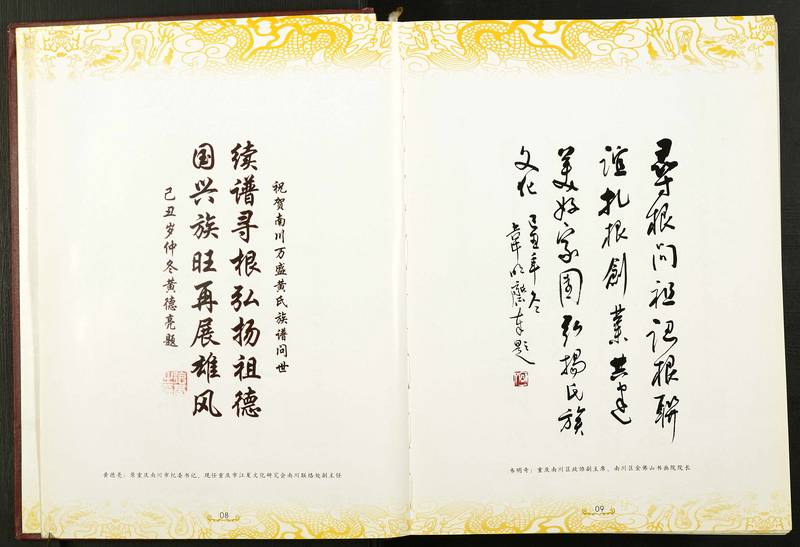 祝贺南川万盛黄氏族谱问世
续谱寻根弘扬祖德
国兴族旺再展雄风
己丑岁仲冬黄德亮题
黄德亮：原重庆南川市纪委书记、现任重庆市江夏文化研究会南川联络处副主任
08
尋根问祖认根聯
谊扎根創業共建
美好家園弘揚氏族
文化 己丑年冬
韋明
韦明奇：重庆南川区政协副主席、南川区金佛山书画院院长
09